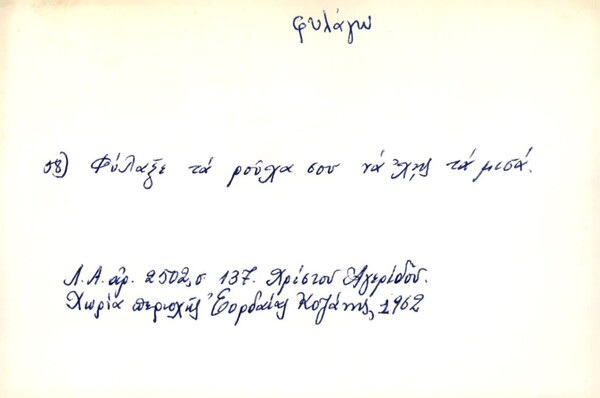 φυλάγω
58) Φύλαξε τά ροῦχα σου νά 'χῃς τά μισά.
Λ.Α. ἀρ. 2502, σ 137. Χρίστου Ἀγερίδου.
Χωρία περιοχῆς Ἐορδαίας Κοζάνης, 1962